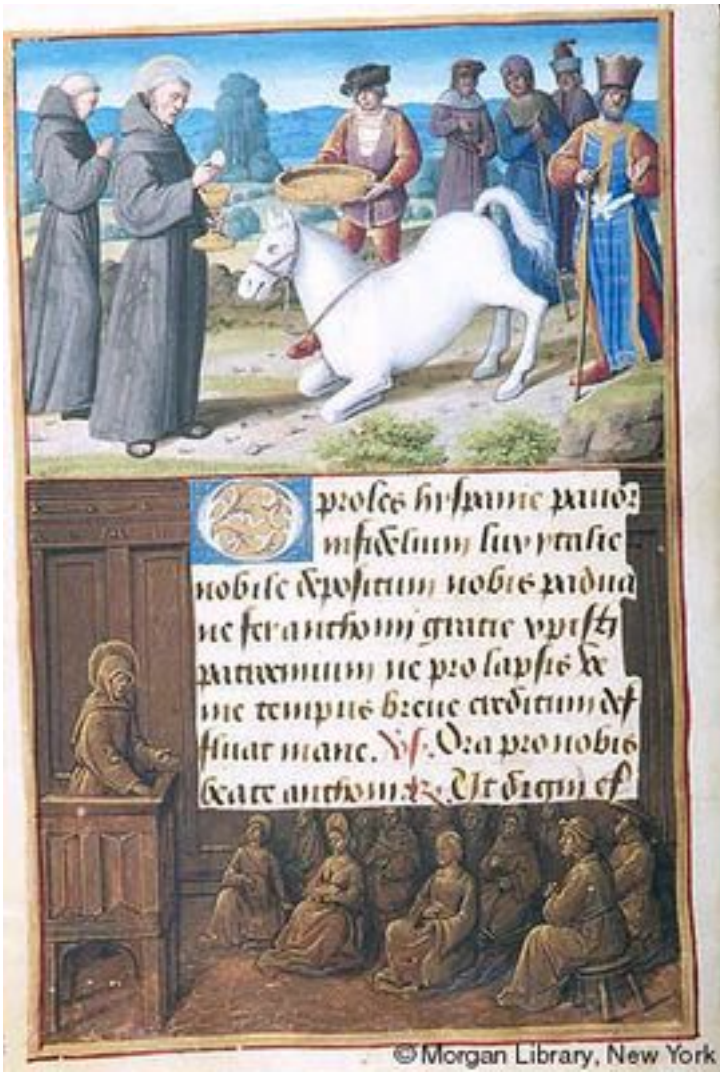 O proles hyspanie pauor
infidelium lux ytalie
nobile depositum nobis padua
ne fer anthoni gratie xpisti
patrocinium ne pro lapsis ve
nie tempus breue creditum def
fluat mane. Vs. Ora pro nobis
beate anthoni. R. Ut digni ef
©Morgan Library, New York